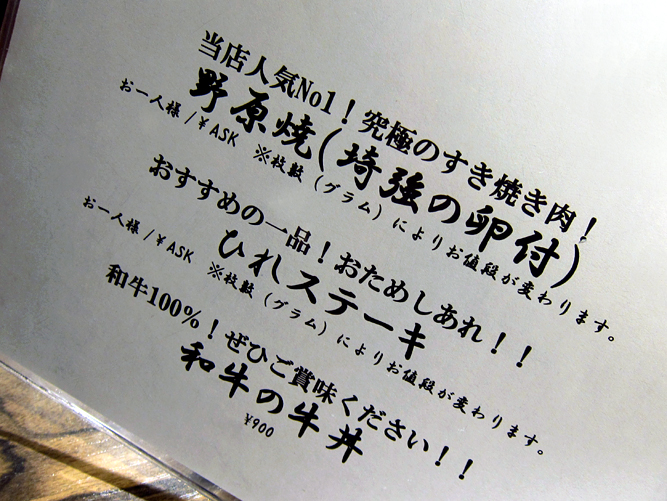 当店人気No1!究極のすき焼き肉!
野原焼(琦強の卵付)
お一人様/¥ASK ※枚数(グラム)によりお値段が変わります。
おすすめの一品!おためしあれ!!
ひれステーキ
お一人様/¥ASK ※枚数(グラム)によりお値段が変わります。
和牛100%!ぜひご賞味ください!!
和牛の牛丼
¥900